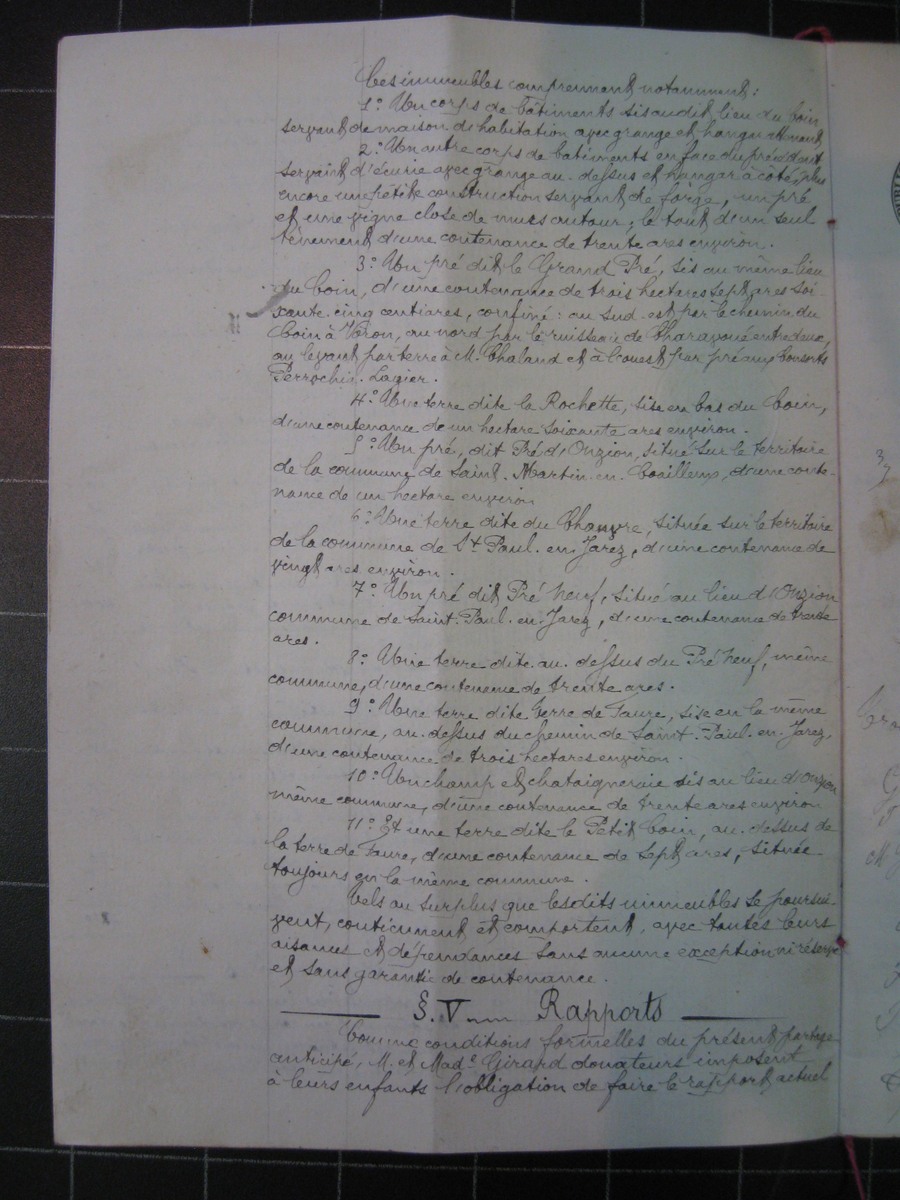 Ces immeubles comprennent notamment:
1° Un corps de bâtiments sis audit lieu du Coin
servant de maison d'habitation avec grange et hangar attenant
2° Un autre corps de bâtiments en face du précédent
servant d'écurie avec grange au-dessus et hangar à côté, plus
encore une petite construction servant de forge, un pré
et une vigne close de murs autour, le tout d'un seul
tènement d'une contenance de trente ares environ.
3° Un pré dit le Grand Pré, sis au même lieu
du Coin, d'une contenance de trois hectares sept ares soi-
xante-cinq centiares, confiné: au sud-est par le chemin du
Coin à Véron, au nord par le ruisseau de entre deux,
au levant par terre à M. Chaland et à l'ouest par pré aux Consorts
Perrochin-Lagier.
4° Une terre dite la Rochette, sise en bas du Coin,
d'une contenance de un hectare soixante ares environ.
5° Un pré, dit Pré d'Onzion, situé sur le territoire
de la commune de Saint-Martin-en-Coailleux, d'une conte-
nance de un hectare environ
6° Une terre dite du Chanvre, située sur le territoire
de la commune de St Paul-en-Jarez, d'une contenance de
vingt ares environ.
7° Un pré dit Pré Neuf, situé au lieu d'Onzion
commune de Saint-Paul-en-Jarez, d'une contenance de trente
ares.
8° Une terre dite au-dessus du Pré Neuf, même
commune, d'une contenance de trente ares.
9° Une terre dite Terre de Faure, sise en la même
commune, au-dessus du chemin de Saint-Paul-en-Jarez,
d'une contenance de trois hectares environ.
10° Un champ et chataigneraie sis au lieu d'Onzion
même commune, d'une contenance de trente ares environ
11° Et une terre dite le Petit Coin, au-dessus de
la terre de Faure, d'une contenance de sept ares, située
toujours en la même commune.
Tels au surplus que lesdits immeubles se poursui-
vent, contiennent et comportent, avec toutes leurs
aisances et dépendances sans aucune exception ni réserve
et sans garantie de contenance.
§. V Rapports
Comme conditions formelles du présent partage
anticipé, M. et Made Girard donateurs imposent
à leurs enfants l'obligation de faire le rapport actuel